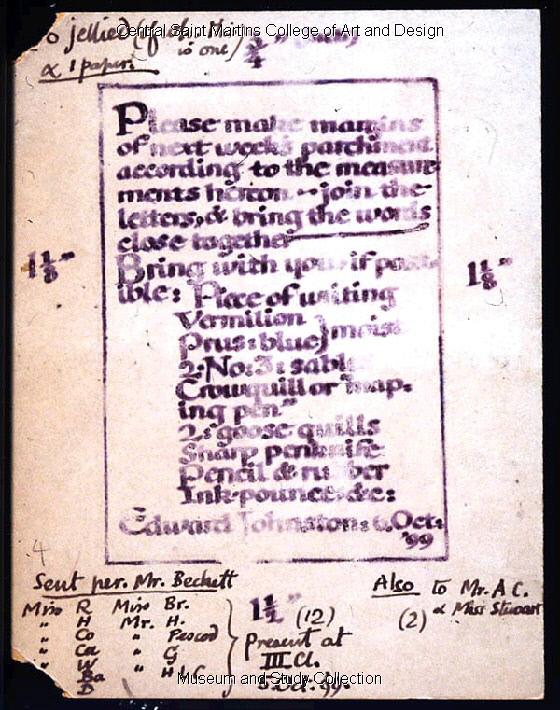 Central Saint Martins College of Art and Design
jellied (of
is one)
& 1 paper.
3/4"
Please make margins
of next week's parchment
according to the measure-
ments hereon — join the
letters, & bring the words
close together
Bring with you if poss-
ible: Piece of writing
Vermilion
Prus: blue } moist
2: No: 3: sable
Crowquill or "mapp-
ing pen"
2: goose quills
Sharp penknife
Pencil & rubber
Ink: pounce: &c:
Edward Johnston: 6. Oct:
'99
1 1/8"
1 1/8"
1 1/2"
4
Sent per. Mr. Beckett
Miss R Miss Br.
" H Mr. H.
" Co "
" Ca " G
" W "
" Ba
" D
(12)
Present at
III Cl.
5 Oct. 99.
Also to Mr. A C.
(2) & Miss Stewart
Museum and Study Collection